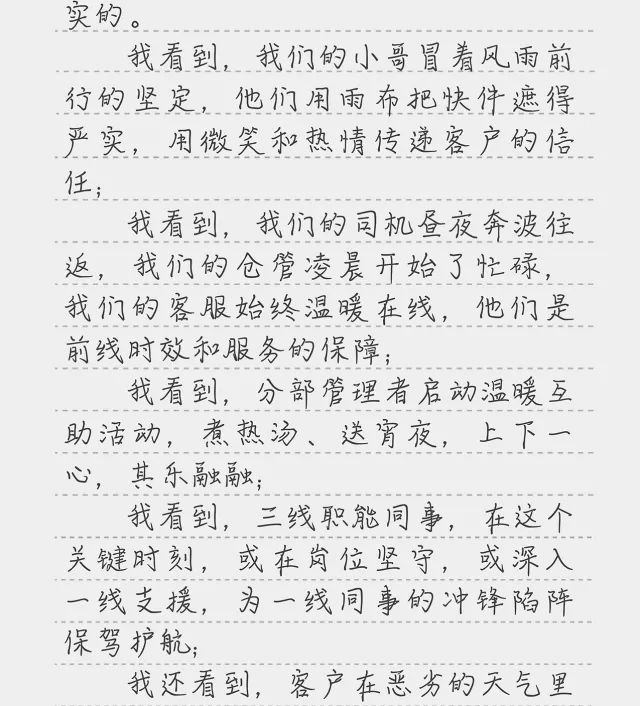 实的。
我看到，我们的小哥冒着风雨前
行的坚定，他们用雨布把快件遮得
严实，用微笑和热情传递客户的信
任；
我看到，我们的司机昼夜奔波往
返，我们的仓管凌晨开始了忙碌，
我们的客服始终温暖在线，他们是
前线时效和服务的保障；
我看到，分部管理者启动温暖互
助活动，煮热汤、送宵夜，上下一
心，其乐融融；
我看到，三线职能同事，在这个
关键时刻，或在岗位坚守，或深入
一线支援，为一线同事的冲锋陷阵
保驾护航；
我还看到，客户在恶劣的天气里